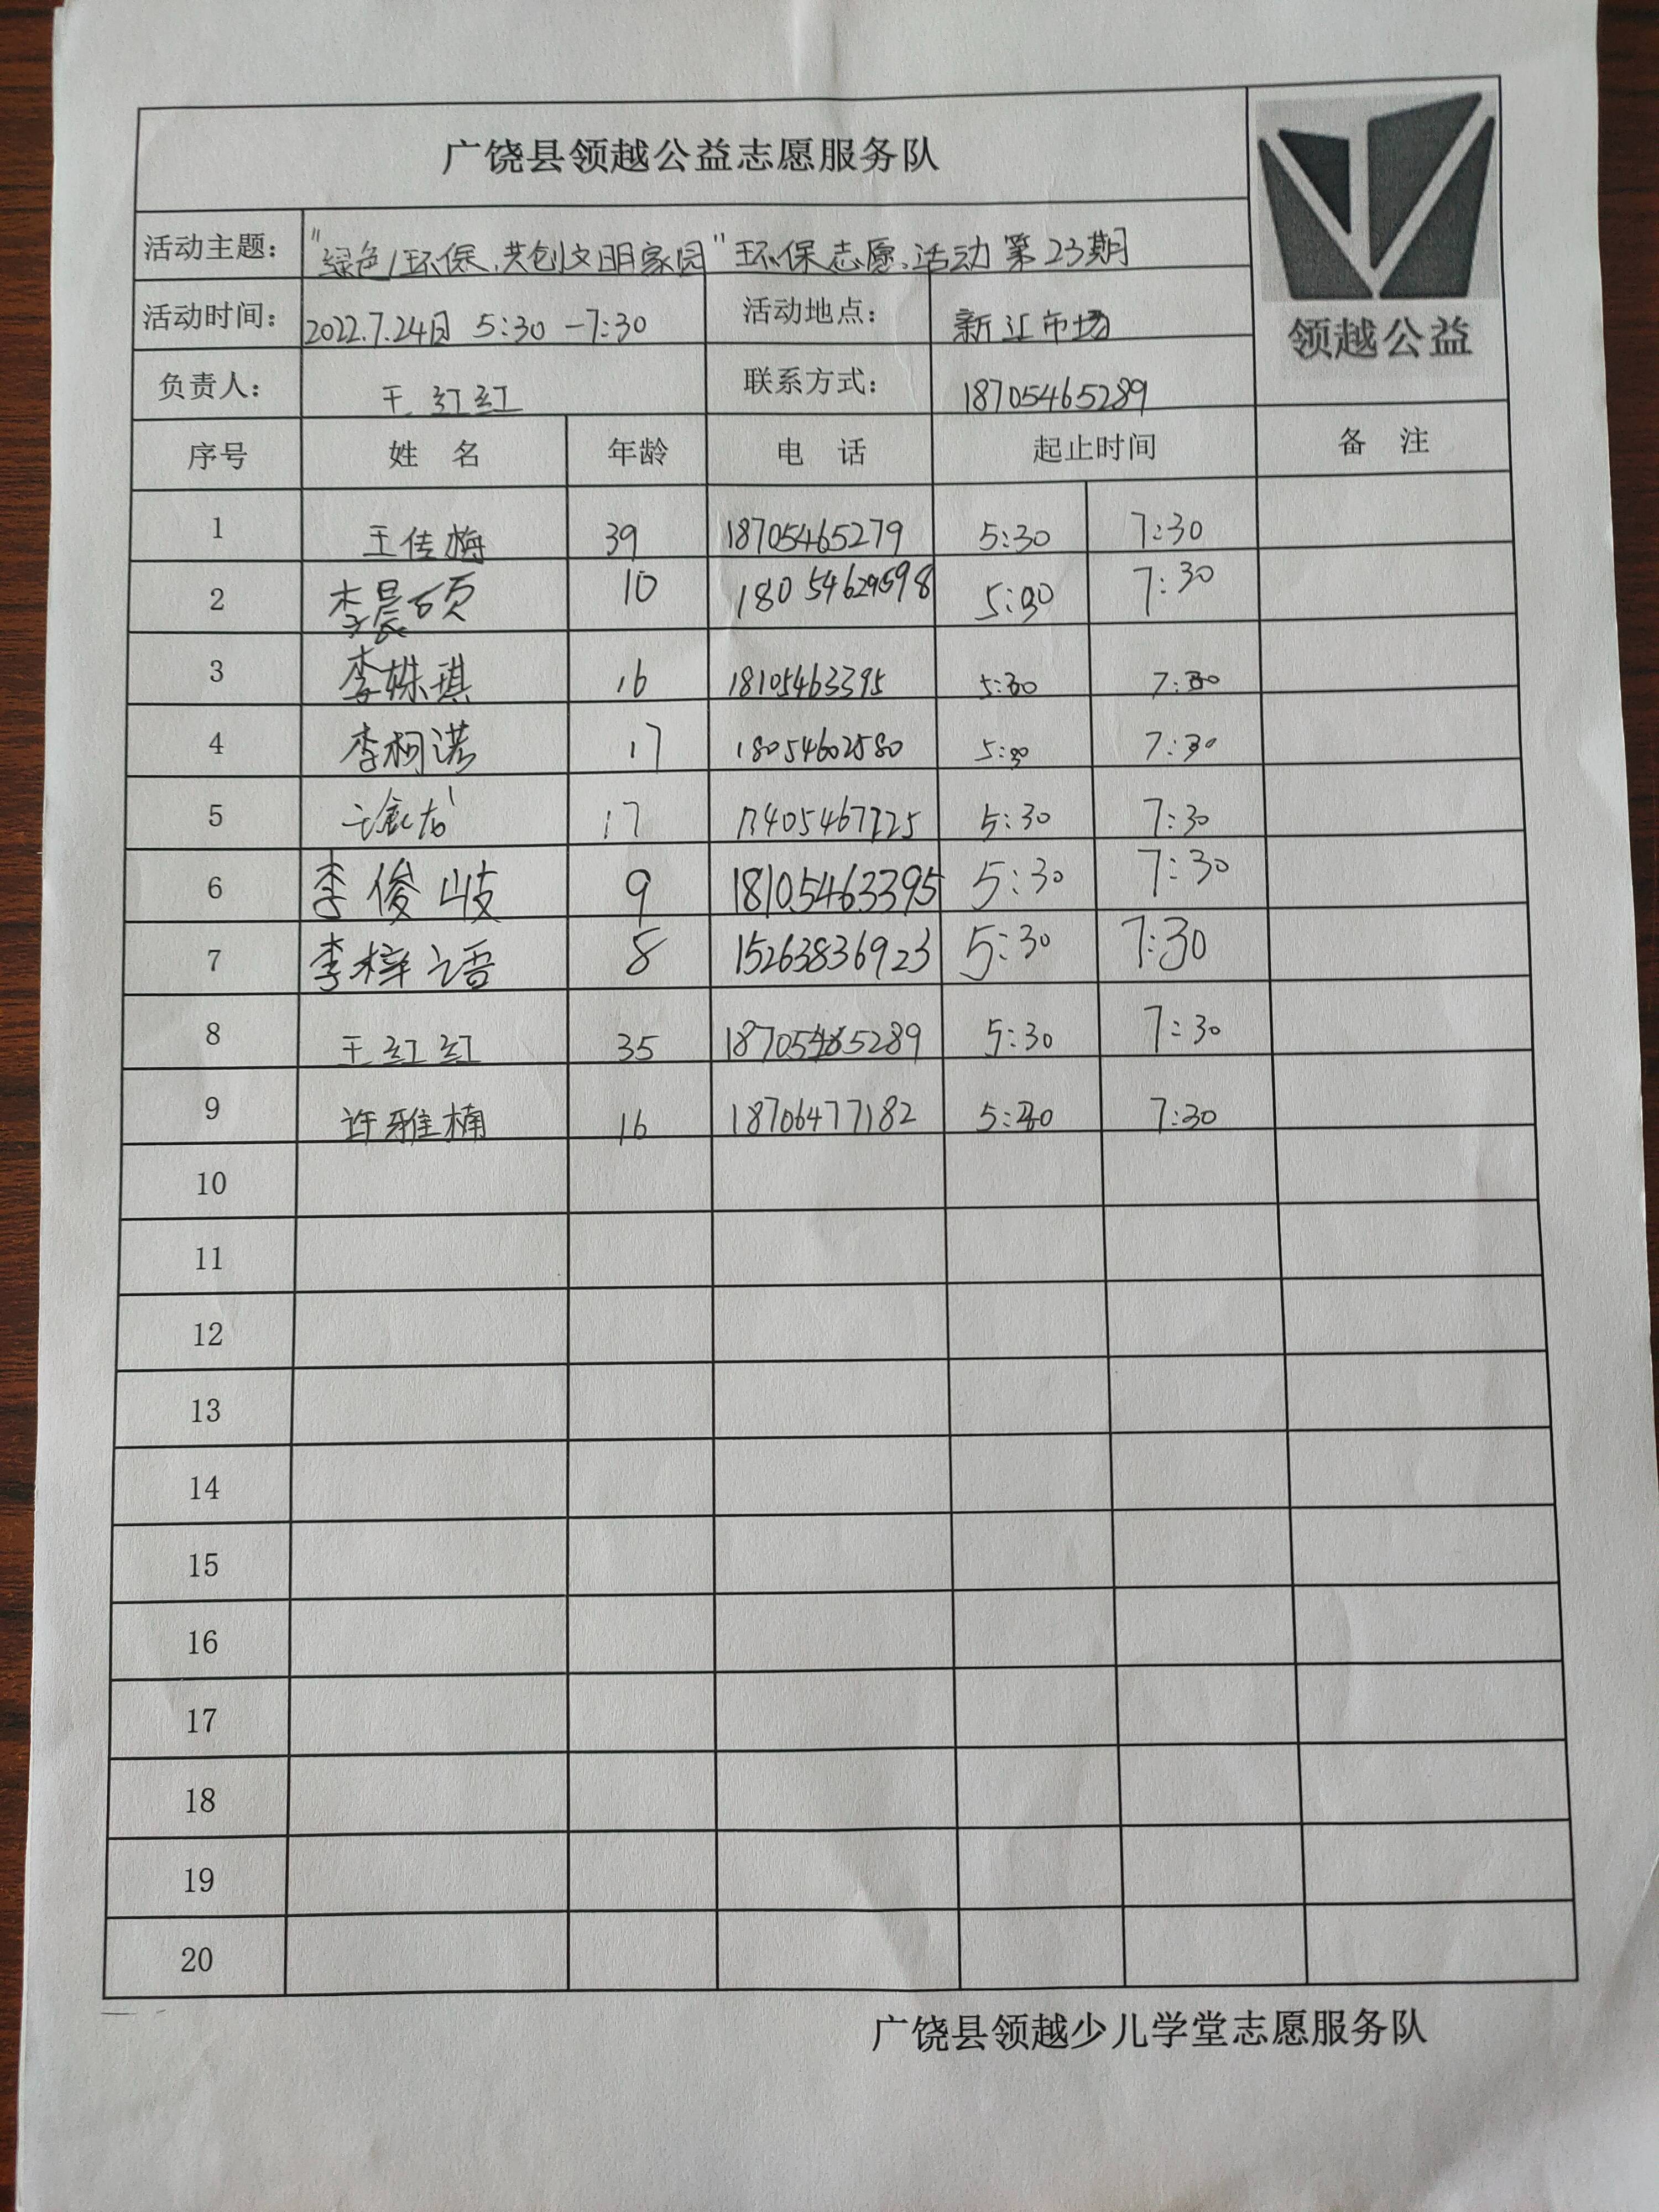 广饶县领越公益志愿服务队
领越公益
活动主题： "绿色环保,共创文明家园"环保志愿活动第23期
活动时间： 2022.7.24日 5:30-7:30 活动地点： 新江市场
负责人： 王红红 联系方式： 18705465289
序号 姓 名 年龄 电 话 起止时间 备 注
1 王传梅 39 18705465279 5:30 7:30
2 李晨硕 10 5:30 7:30
3 李姝琪 16 18105463395 5:30 7:30
4 李柯诺 17 18054602580 5:30 7:30
5 17 5:30 7:30
6 李俊岐 9 18105463395 5:30 7:30
7 李梓语 8 15263836923 5:30 7:30
8 王红红 35 18705465289 5:30 7:30
9 许雅楠 16 18706477182 5:30 7:30
10
11
12
13
14
15
16
17
18
19
20
广饶县领越少儿学堂志愿服务队